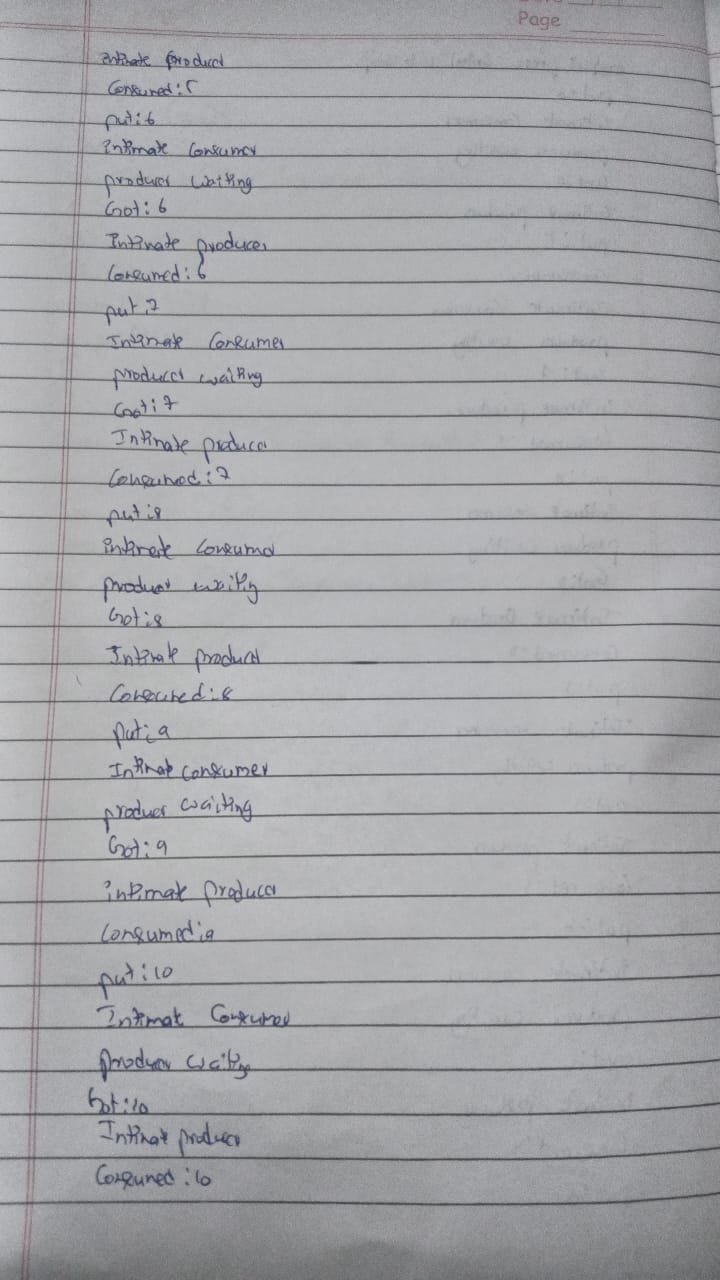 Page
intimate producer
Consumed:5
put:6
Intimate Consumer
producer waiting
Got:6
Intimate producer
Consumed:6
put:7
Intimate Consumer
producer waiting
Got:7
Intimate producer
Consumed:7
put:8
intimate Consumer
producer waiting
Got:8
Intimate producer
Consumed:8
put:9
Intimate consumer
producer waiting
Got:9
intimate producer
Consumed:9
put:10
Intimate Consumer
producer waiting
Got:10
Intimate producer
Consumed:10